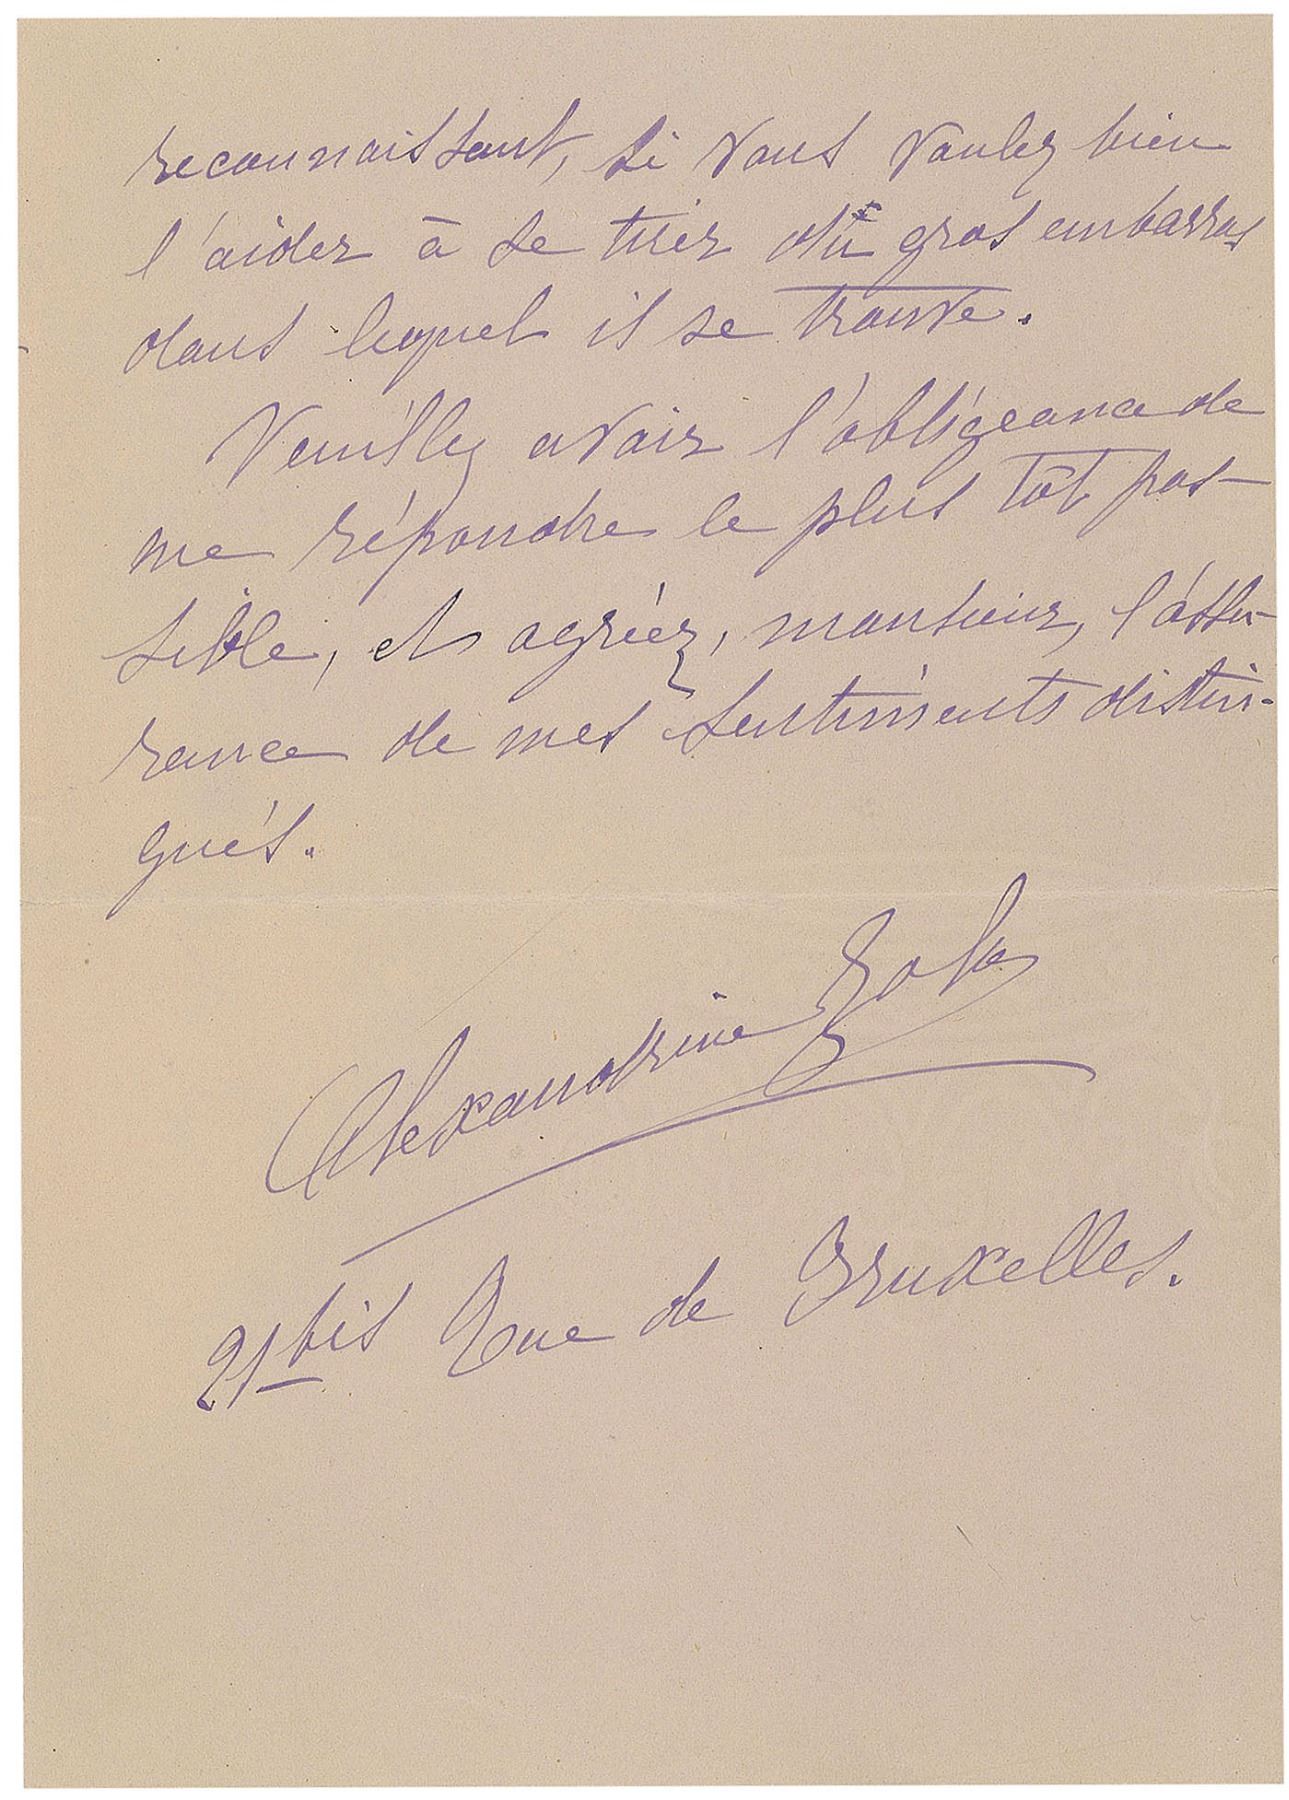 reconnaissant, si vous voulez bien
l'aider à se tirer du gros embarras
dans lequel il se trouve.
Veuillez avoir l'obligeance de
me répondre le plus tôt pos-
sible, et agréez, monsieur, l'assu-
rance de mes sentiments distin-
gués.
Alexandrine Zola
21 bis Rue de Bruxelles.